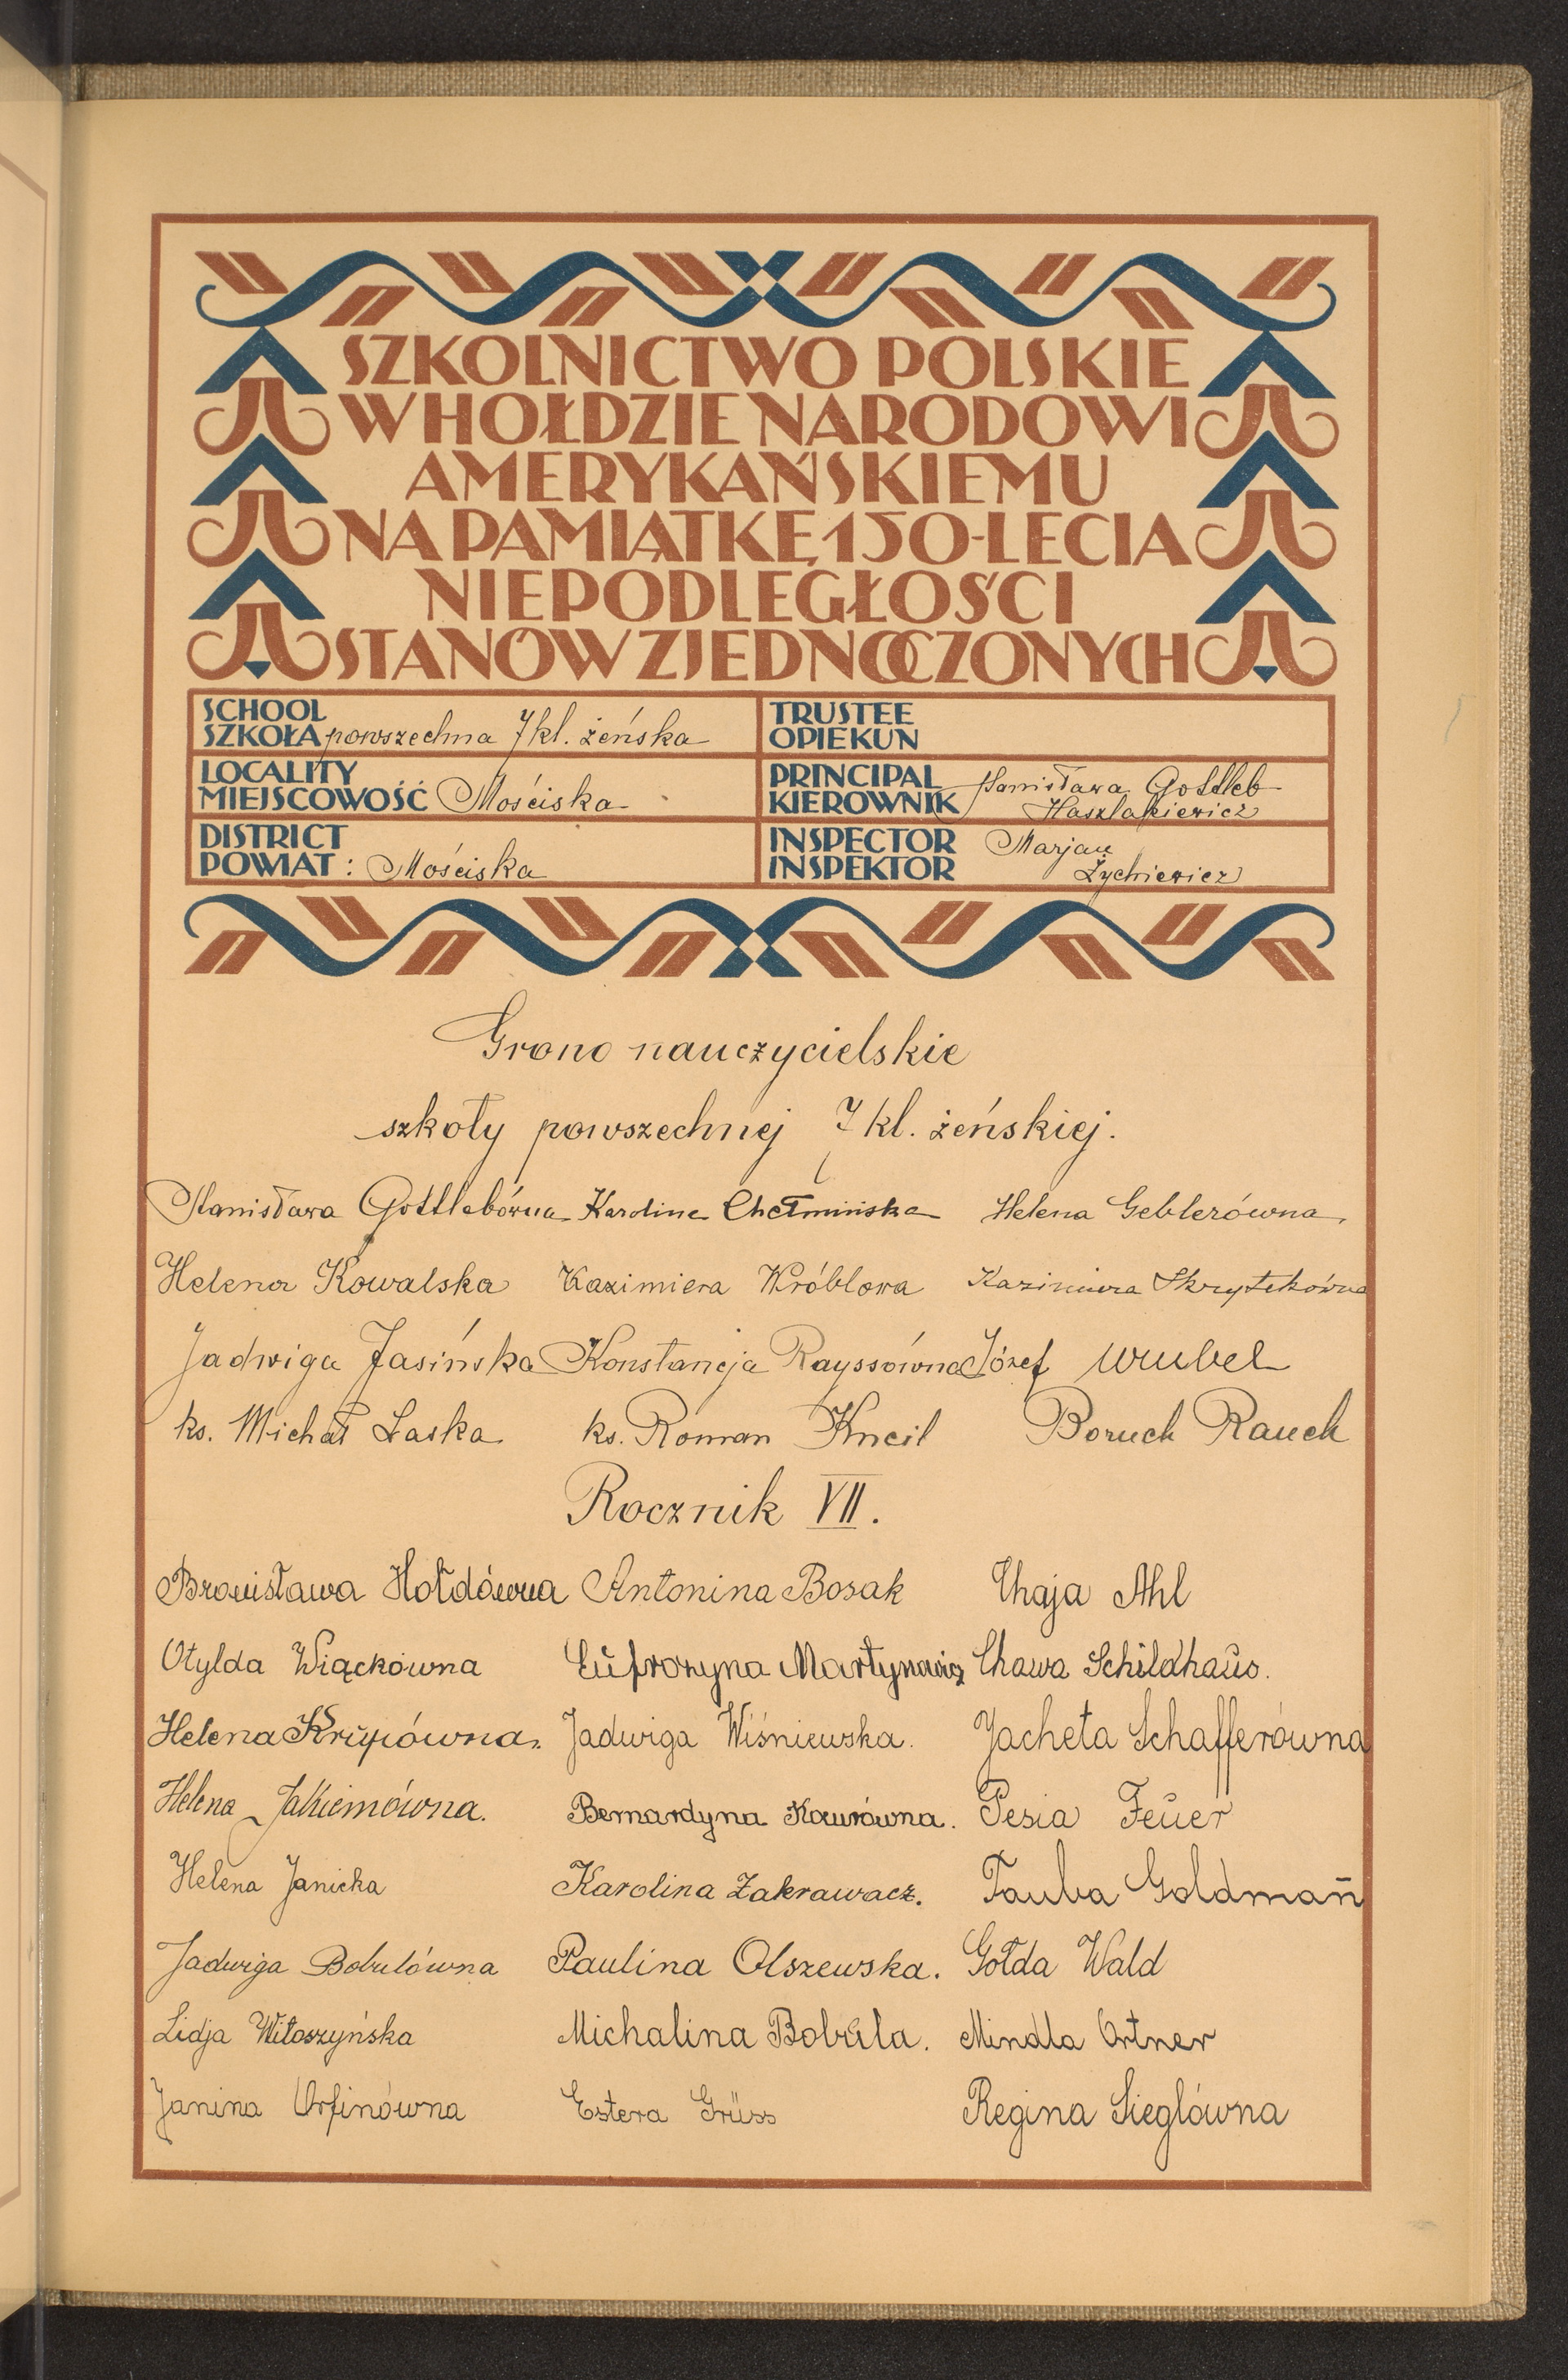 SZKOLNICTWO POLSKIE
W HOŁDZIE NARODOWI
AMERYKAŃSKIEMU
NA PAMIĄTKĘ 150-LECIA
NIEPODLEGŁOŚCI
STANÓW ZJEDNOCZONYCH
SCHOOL
SZKOŁA powszechna 7 kl. żeńska
TRUSTEE
OPIEKUN
LOCALITY
MIEJSCOWOŚĆ Mościska
PRINCIPAL Stanisława Gottleb
KIEROWNIK Haszlakiewicz
DISTRICT
POWIAT: Mościska
INSPECTOR Marjan
INSPEKTOR Żychiewicz
Grono nauczycielskie
szkoły powszechnej 7 kl. żeńskiej.
Stanisława Gottlebówna Karolina Chełmińska Helena Geblerówna
Helena Kowalska Kazimiera Wróblowa Kazimiera Skrytekówna
Jadwiga Jasińska Konstancja Rayssówna Józef Wrubel
ks. Michał Laska ks. Roman Kneil Boruch Rauch
Rocznik VII.
Bronisława Hołdówna Antonina Bosak Chaja Ahl
Otylda Wiąckówna Eufrozyna Martynowicz Chawa Schildhaus.
Helena Krupówna. Jadwiga Wiśniewska. Jacheta Schafferówna
Helena Jakiemówna. Bernardyna Kawrówna. Pesia Feuer
Helena Janicka Karolina Zakrawacz. Tauba Goldman
Jadwiga Bobulówna Paulina Olszewska. Gołda Wald
Lidja Witoszyńska Michalina Bobula. Mindla Ortner
Janina Orfinówna Estera Grüss Regina Sieglówna